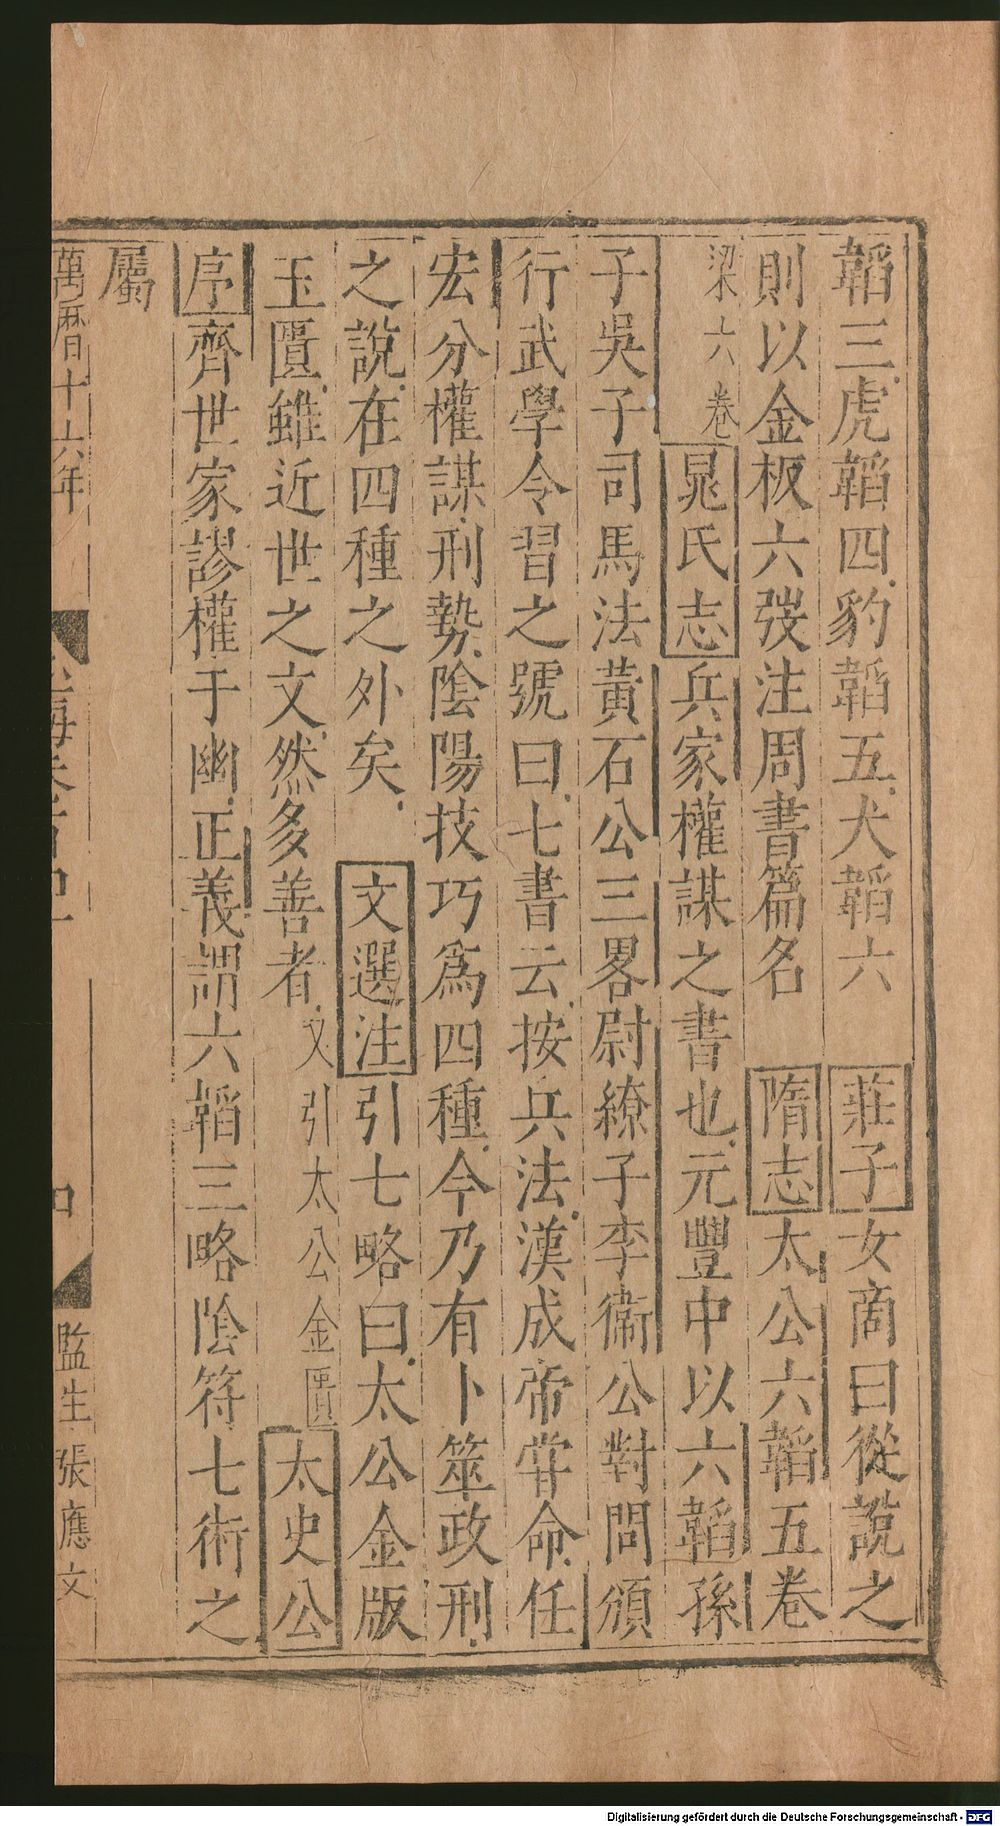 韜三虎韜四豹韜五犬韜六　莊子女商曰從說之
則以金板六弢注周書篇名　隋志太公六韜五卷
梁六卷晁氏志兵家權謀之書也元豐中以六韜孫
子吳子司馬法黃石公三畧尉繚子李衞公對問頒
行武學令習之號曰七書云按兵法漢成帝甞命任
宏分權謀刑勢陰陽技巧爲四種今乃有卜筮政刑
之說在四種之外矣文選注引七略曰太公金版
玉匱雖近世之文然多善者又引太公金匱太史公
序齊世家謬權于幽正義謂六韜三略陰符七術之
屬
萬曆十六年
四
監生張應文
Digitalisierung gefördert durch die Deutsche Forschungsgemeinschaft - DFG